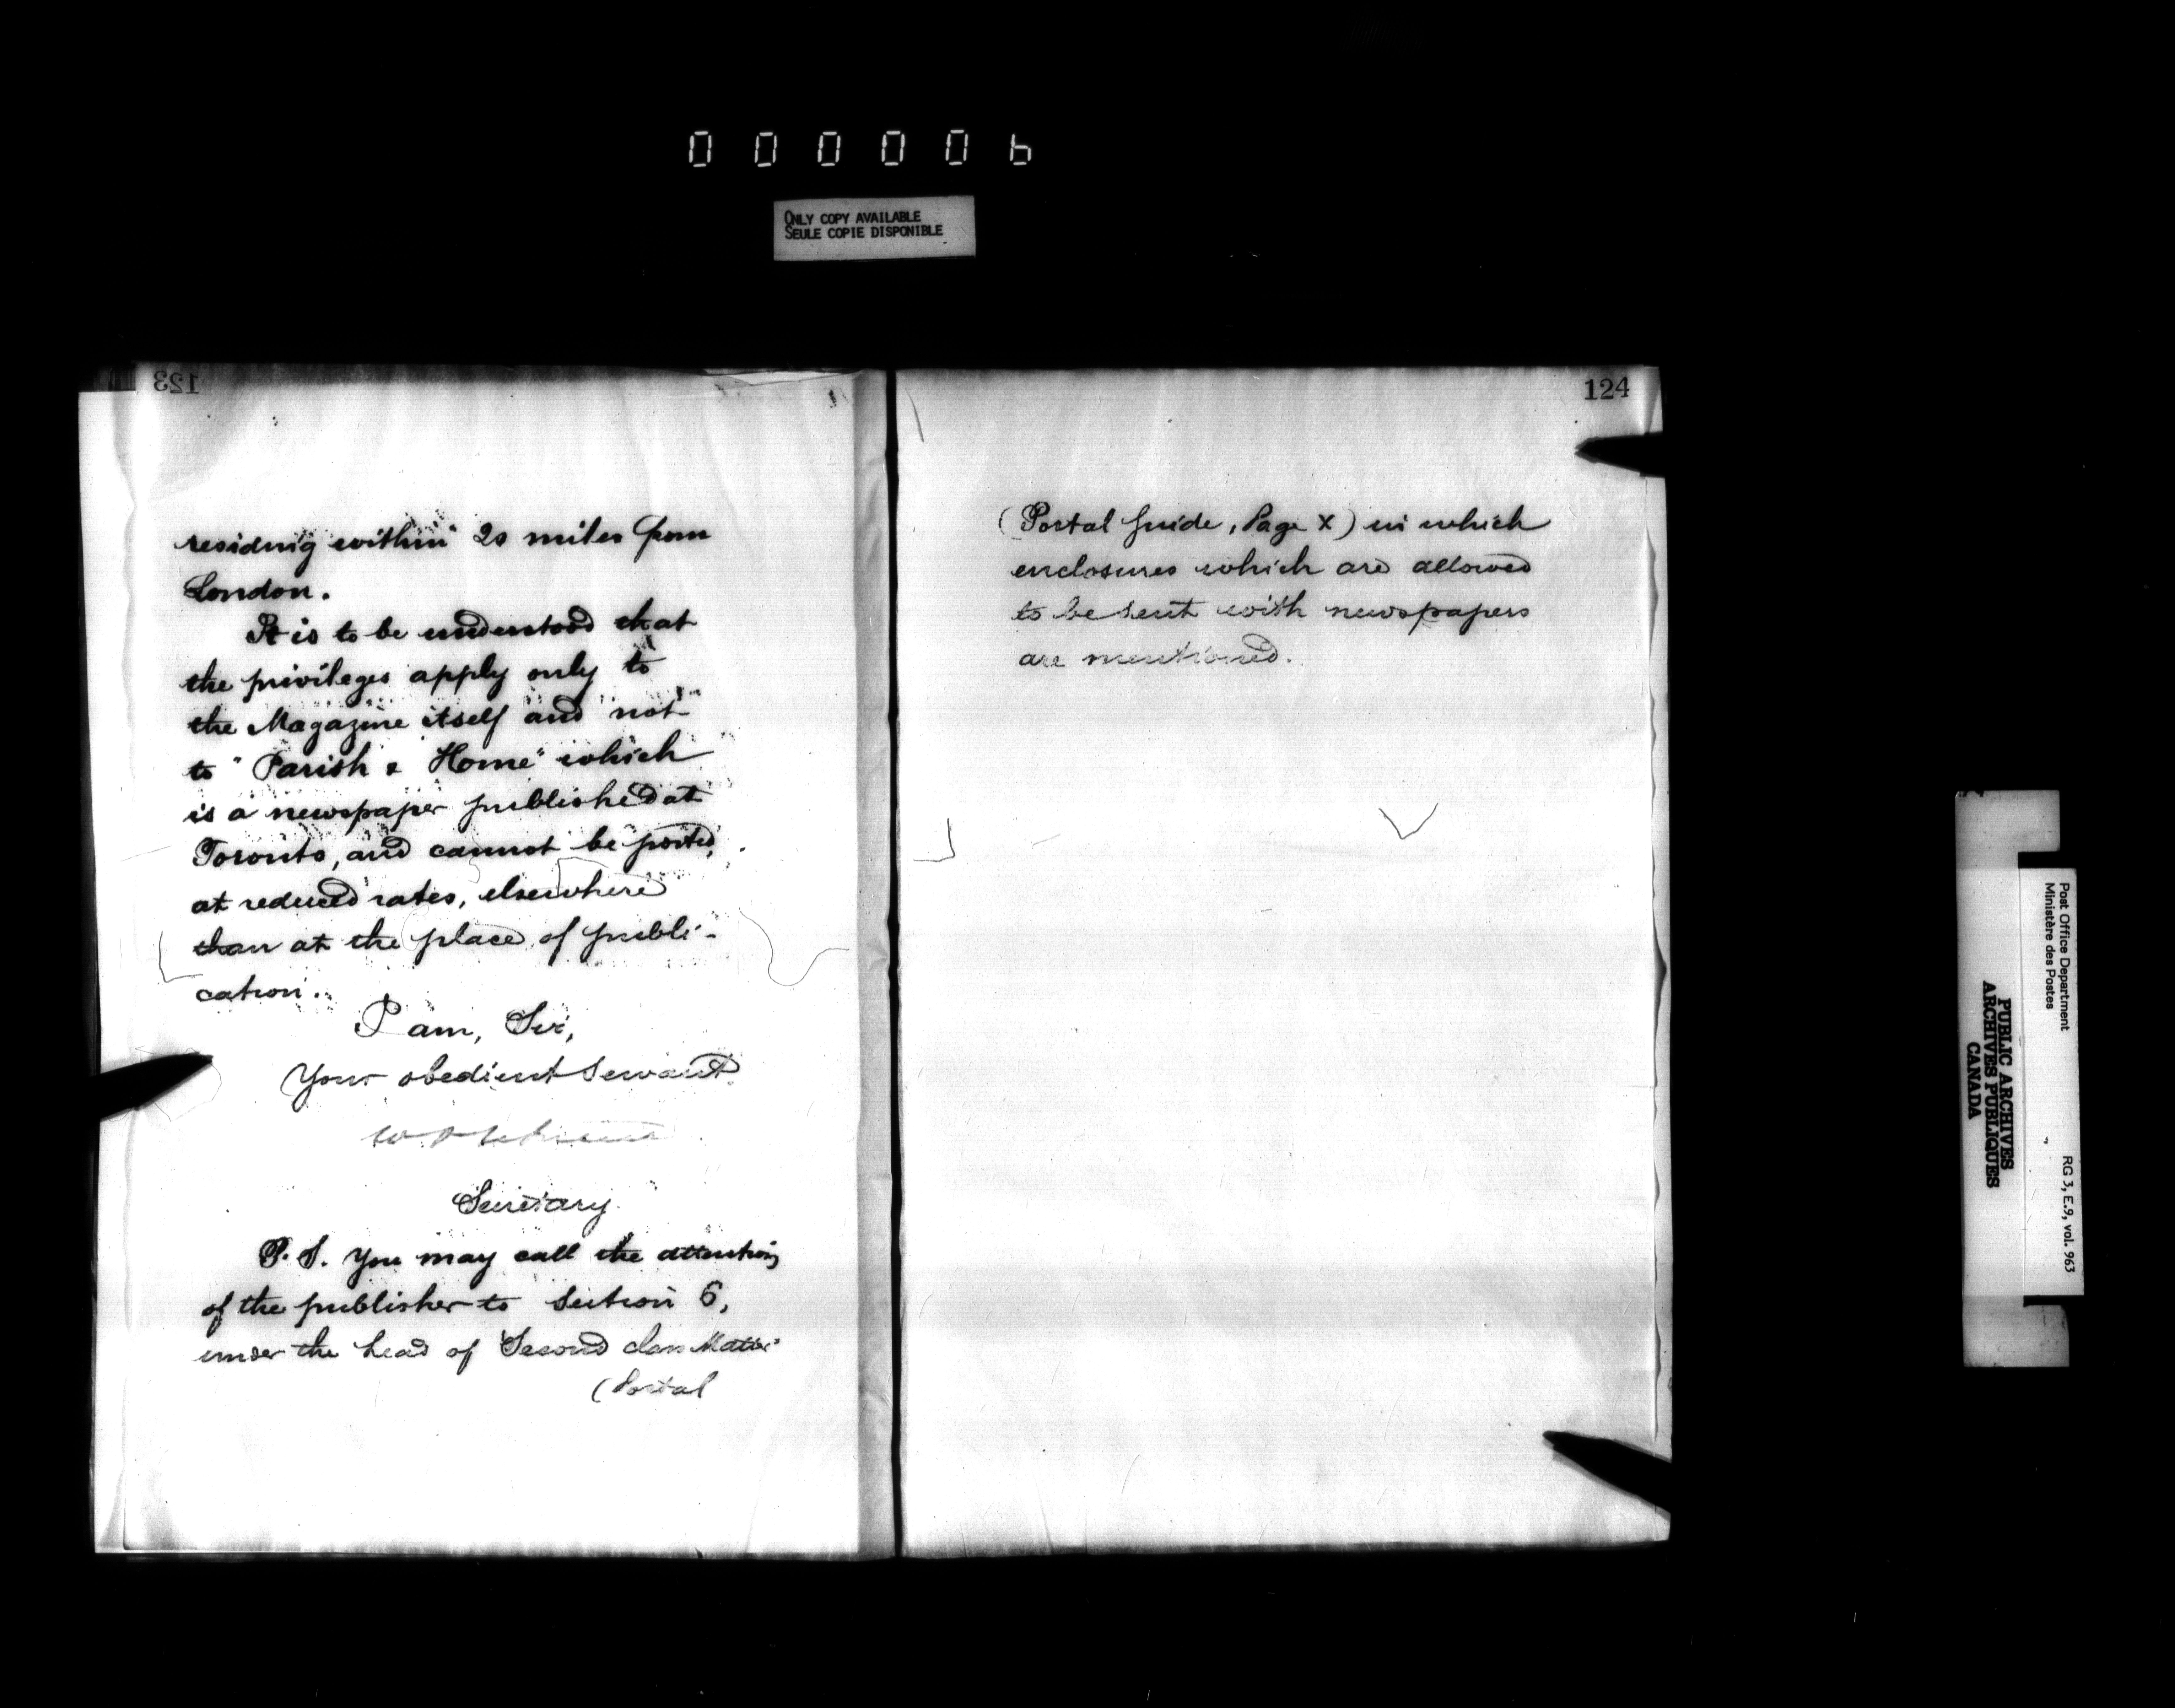 000006
ONLY COPY AVAILABLE
SEULE COPIE DISPONIBLE
123
residing within 20 miles from
London.
It is to be understood that
the privileges apply only to
the Magazine itself and not
to "Parish & Home" which
is a newspaper published at
Toronto, and cannot be posted,
at reduced rates, elsewhere
than at the place of publi-
cation.
I am, Sir,
Your obedient Servant.
Secretary.
P.S. You may call the attention
of the publisher to Section 6,
under the head of "Second class Matter"
(Postal
124
(Postal Guide, Page X) in which
enclosures which are allowed
to be sent with newspapers
are mentioned.
Post Office Department
Ministère des Postes
RG 3, E.9, vol. 963
PUBLIC ARCHIVES
ARCHIVES PUBLIQUES
CANADA